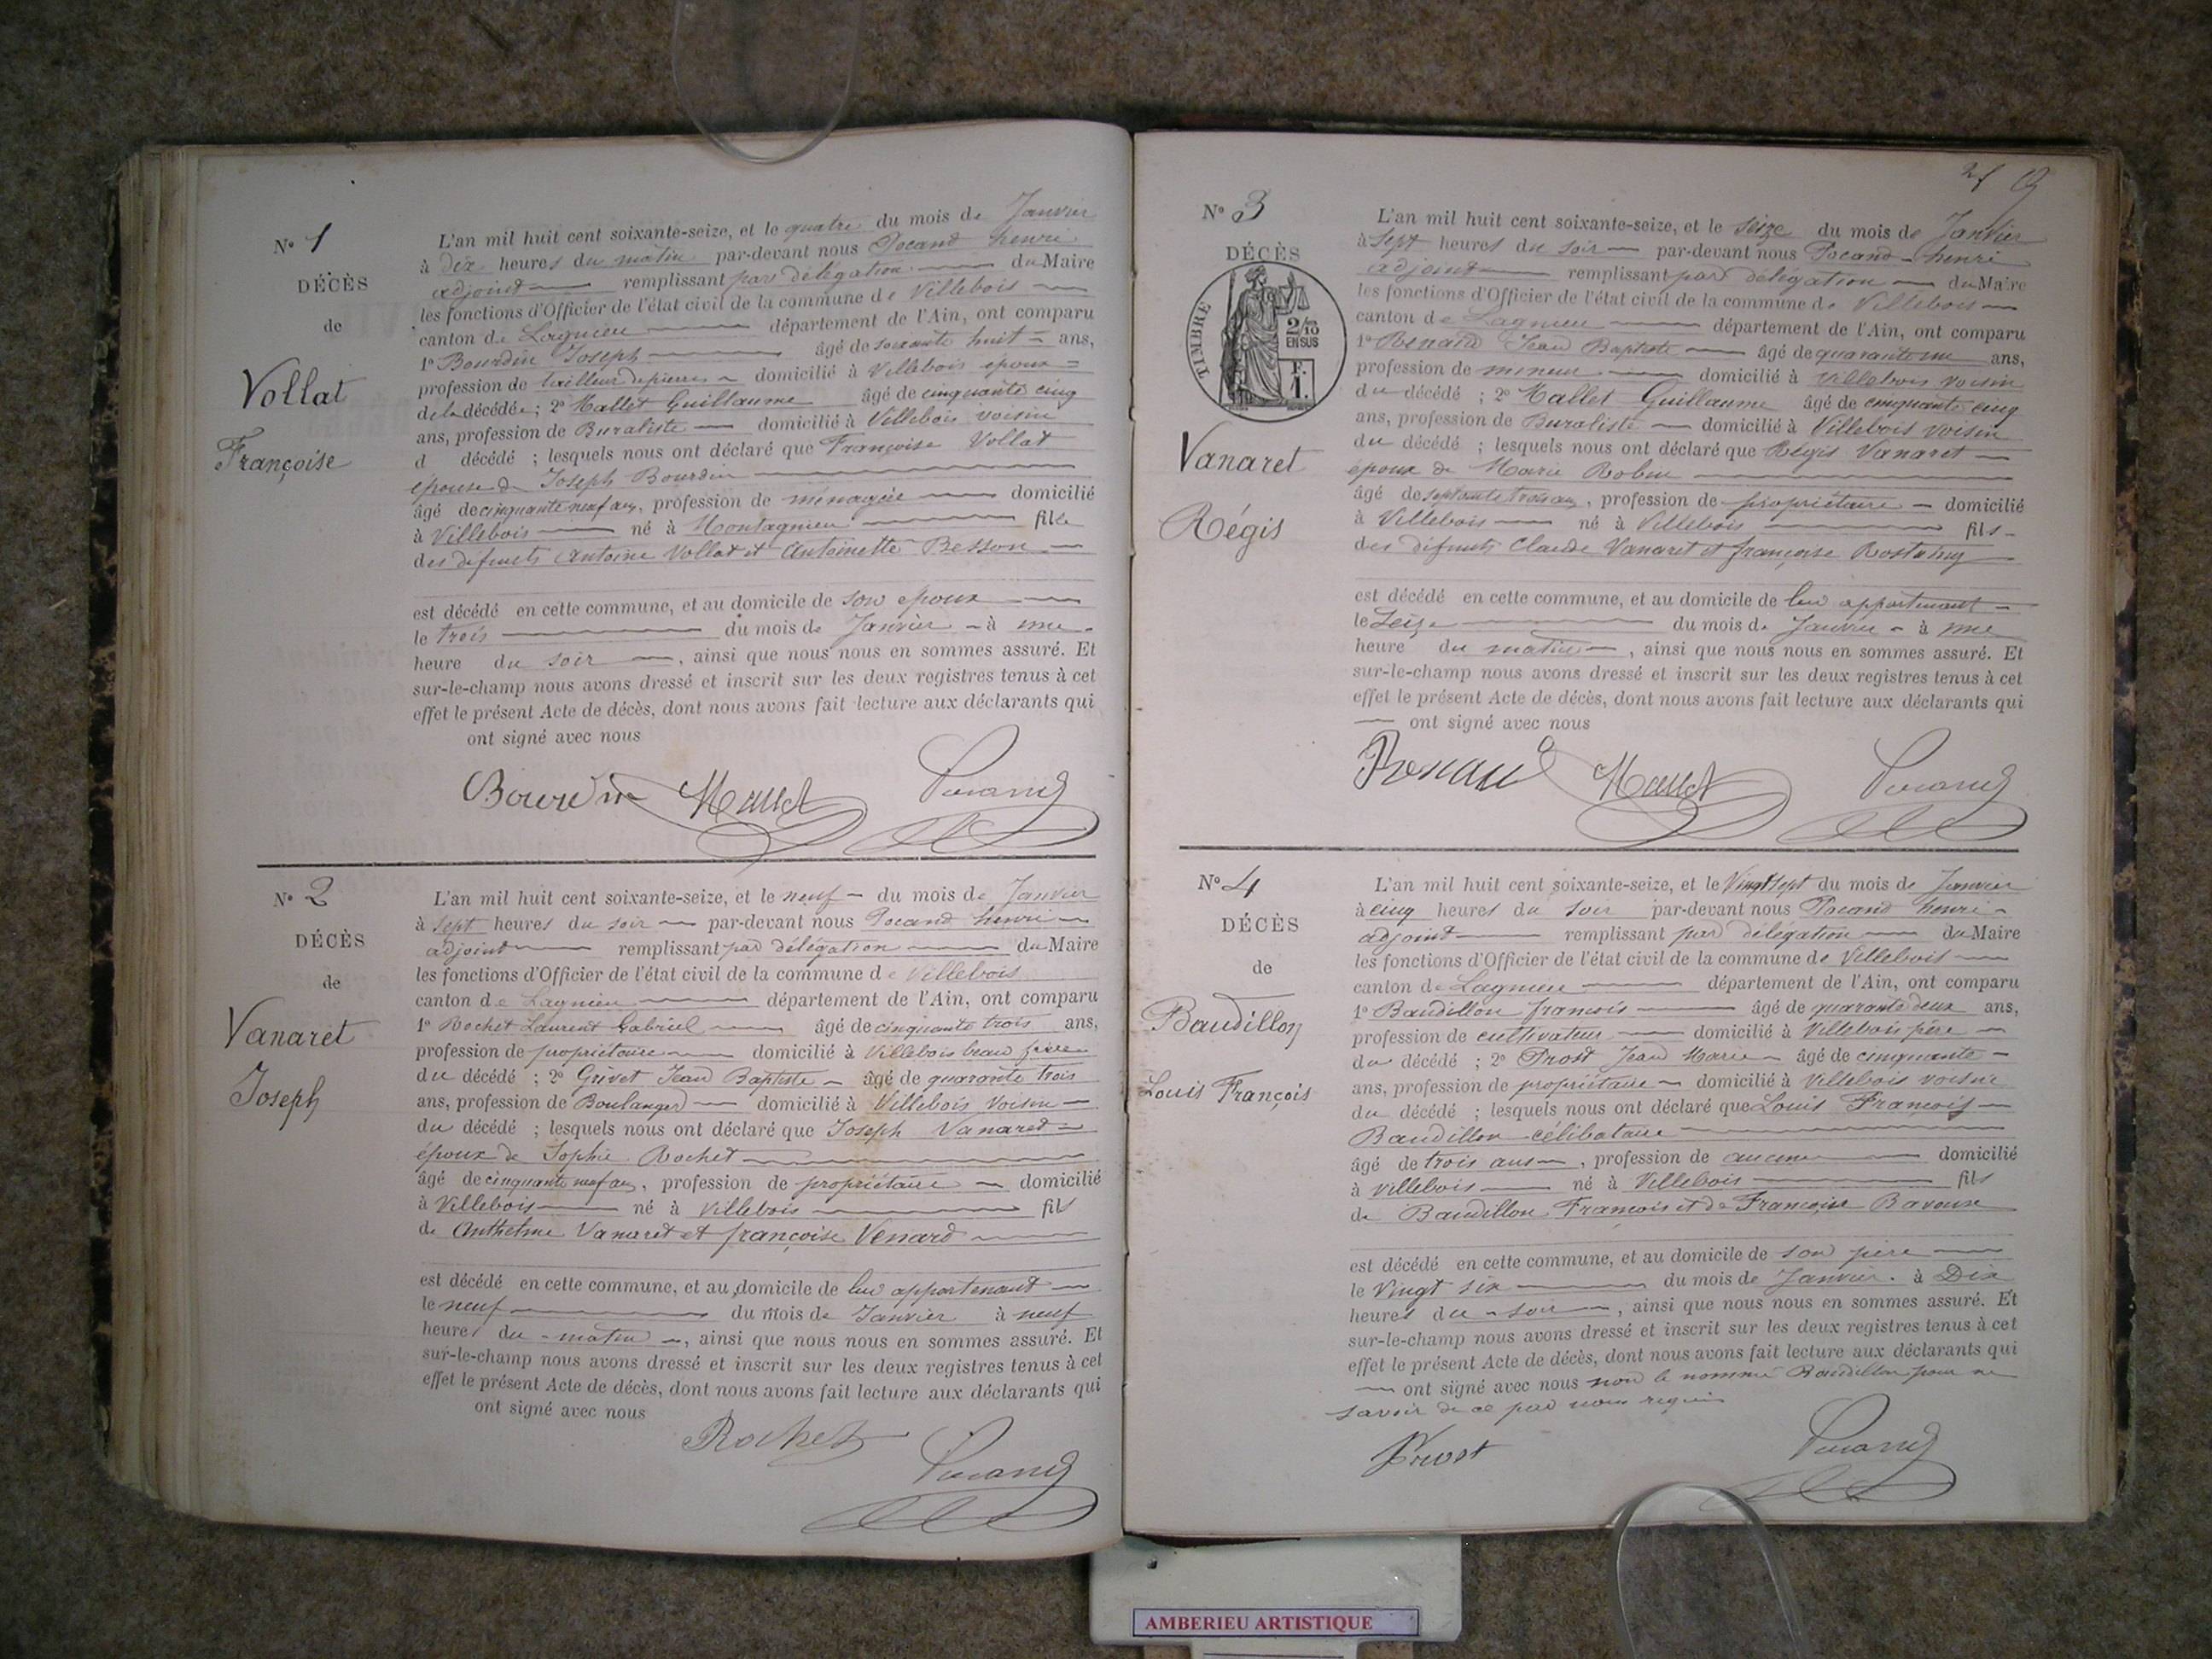 N° 1
DÉCÈS
de
Vollat
Françoise
L'an mil huit cent soixante-seize, et le quatre du mois de Janvier
à dix heures du matin par-devant nous Pocand henri
adjoint remplissant par délégation du Maire
les fonctions d'Officier de l'état civil de la commune de Villebois
canton de Lagnieu département de l'Ain, ont comparu
1° Bourdin Joseph âgé de soixante huit ans,
profession de tailleur de pierres domicilié à Villebois époux
de la décédée ; 2° Mallet Guillaume âgé de cinquante cinq
ans, profession de Buraliste domicilié à Villebois voisin
d décédé ; lesquels nous ont déclaré que Françoise Vollat
épouse de Joseph Bourdin
âgé de cinquante neuf ans, profession de ménagère domicilié
à Villebois né à Montagnieu fille
des défunts Antoine Vollat et Antoinette Besson
est décédé en cette commune, et au domicile de son époux
le trois du mois de Janvier à une
heure du soir, ainsi que nous nous en sommes assuré. Et
sur-le-champ nous avons dressé et inscrit sur les deux registres tenus à cet
effet le présent Acte de décès, dont nous avons fait lecture aux déclarants qui
ont signé avec nous
Bourdin Mallet Pocand
N° 2
DÉCÈS
de
Vanaret
Joseph
L'an mil huit cent soixante-seize, et le neuf du mois de Janvier
à sept heures du soir par-devant nous Pocand henri
adjoint remplissant par délégation du Maire
les fonctions d'Officier de l'état civil de la commune de Villebois
canton de Lagnieu département de l'Ain, ont comparu
1° Rochet Laurent Gabriel âgé de cinquante trois ans,
profession de propriétaire domicilié à Villebois beau frère
du décédé ; 2° Grivet Jean Baptiste âgé de quarante trois
ans, profession de Boulanger domicilié à Villebois voisin
du décédé ; lesquels nous ont déclaré que Joseph Vanaret
époux de Sophie Rochet
âgé de cinquante neuf ans, profession de propriétaire domicilié
à Villebois né à Villebois fils
de Anthelme Vanaret et françoise Venard
est décédé en cette commune, et au domicile de lui appartenant
le neuf du mois de Janvier à neuf
heures du matin, ainsi que nous nous en sommes assuré. Et
sur-le-champ nous avons dressé et inscrit sur les deux registres tenus à cet
effet le présent Acte de décès, dont nous avons fait lecture aux déclarants qui
ont signé avec nous
Rochet Pocand
N° 3
DÉCÈS
TIMBRE
2/10
EN SUS
F.
1.
Vanaret
Régis
L'an mil huit cent soixante-seize, et le seize du mois de Janvier
à sept heures du soir par-devant nous Pocand henri
adjoint remplissant par délégation du Maire
les fonctions d'Officier de l'état civil de la commune de Villebois
canton de Lagnieu département de l'Ain, ont comparu
1° Renaud Jean Baptiste âgé de quarante un ans,
profession de mineur domicilié à Villebois voisin
du décédé ; 2° Mallet Guillaume âgé de cinquante cinq
ans, profession de Buraliste domicilié à Villebois voisin
du décédé ; lesquels nous ont déclaré que Régis Vanaret
époux de Marie Robin
âgé de septante trois ans, profession de propriétaire domicilié
à Villebois né à Villebois fils
des défunts Claude Vanaret et françoise Rostaing
est décédé en cette commune, et au domicile de lui appartenant
le Seize du mois de Janvier à une
heure du matin, ainsi que nous nous en sommes assuré. Et
sur-le-champ nous avons dressé et inscrit sur les deux registres tenus à cet
effet le présent Acte de décès, dont nous avons fait lecture aux déclarants qui
ont signé avec nous
Renaud Mallet Pocand
N° 4
DÉCÈS
de
Baudillon
Louis François
L'an mil huit cent soixante-seize, et le Vingt sept du mois de Janvier
à cinq heures du soir par-devant nous Pocand henri
adjoint remplissant par délégation du Maire
les fonctions d'Officier de l'état civil de la commune de Villebois
canton de Lagnieu département de l'Ain, ont comparu
1° Baudillon francois âgé de quarante deux ans,
profession de cultivateur domicilié à Villebois père
du décédé ; 2° Prost Jean Marie âgé de cinquante
ans, profession de propriétaire domicilié à Villebois voisin
du décédé ; lesquels nous ont déclaré que Louis François
Baudillon célibataire
âgé de trois ans, profession de aucune domicilié
à Villebois né à Villebois fils
de Baudillon François et de Françoise Bavouse
est décédé en cette commune, et au domicile de son père
le Vingt six du mois de Janvier. à Dix
heures du soir, ainsi que nous nous en sommes assuré. Et
sur-le-champ nous avons dressé et inscrit sur les deux registres tenus à cet
effet le présent Acte de décès, dont nous avons fait lecture aux déclarants qui
ont signé avec nous non le nommé Baudillon pour ne
savoir de ce par nous requis
Prost Pocand
AMBERIEU ARTISTIQUE